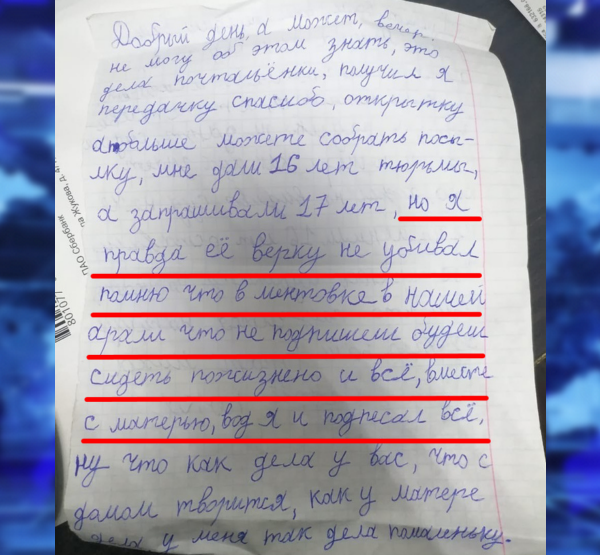 Добрый день, а может, вечер.
не могу об этом знать, это
дела почтальёнки, получил я
передачку спасиоб, открытку
а больше можете собрать посы-
лку, мне дали 16 лет тюрьмы,
а запрашивали 17 лет, но я
правда её верку не убивал
помню что в ментовке в нашей
арали что не подпишеш будеш
сидеть пожизнено и всё, вместе
с матерью, вод я и подпесал всё,
ну что как дела у вас, что с
домом творится, как у матере
дела у меня так дела помаленьку.
ПАО Сбербанк
на Жукова, д.
801077